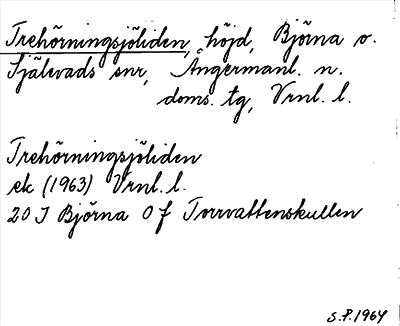 Trehörningsjöliden, höjd, Björna o.
Själevads snr, Ångermanl. n.
doms. tg, Vrnl. l.
Trehörningsjöliden
ek (1963) Vrnl. l.
20 J Björna 0 f Torrvattenskullen
S.P. 1964